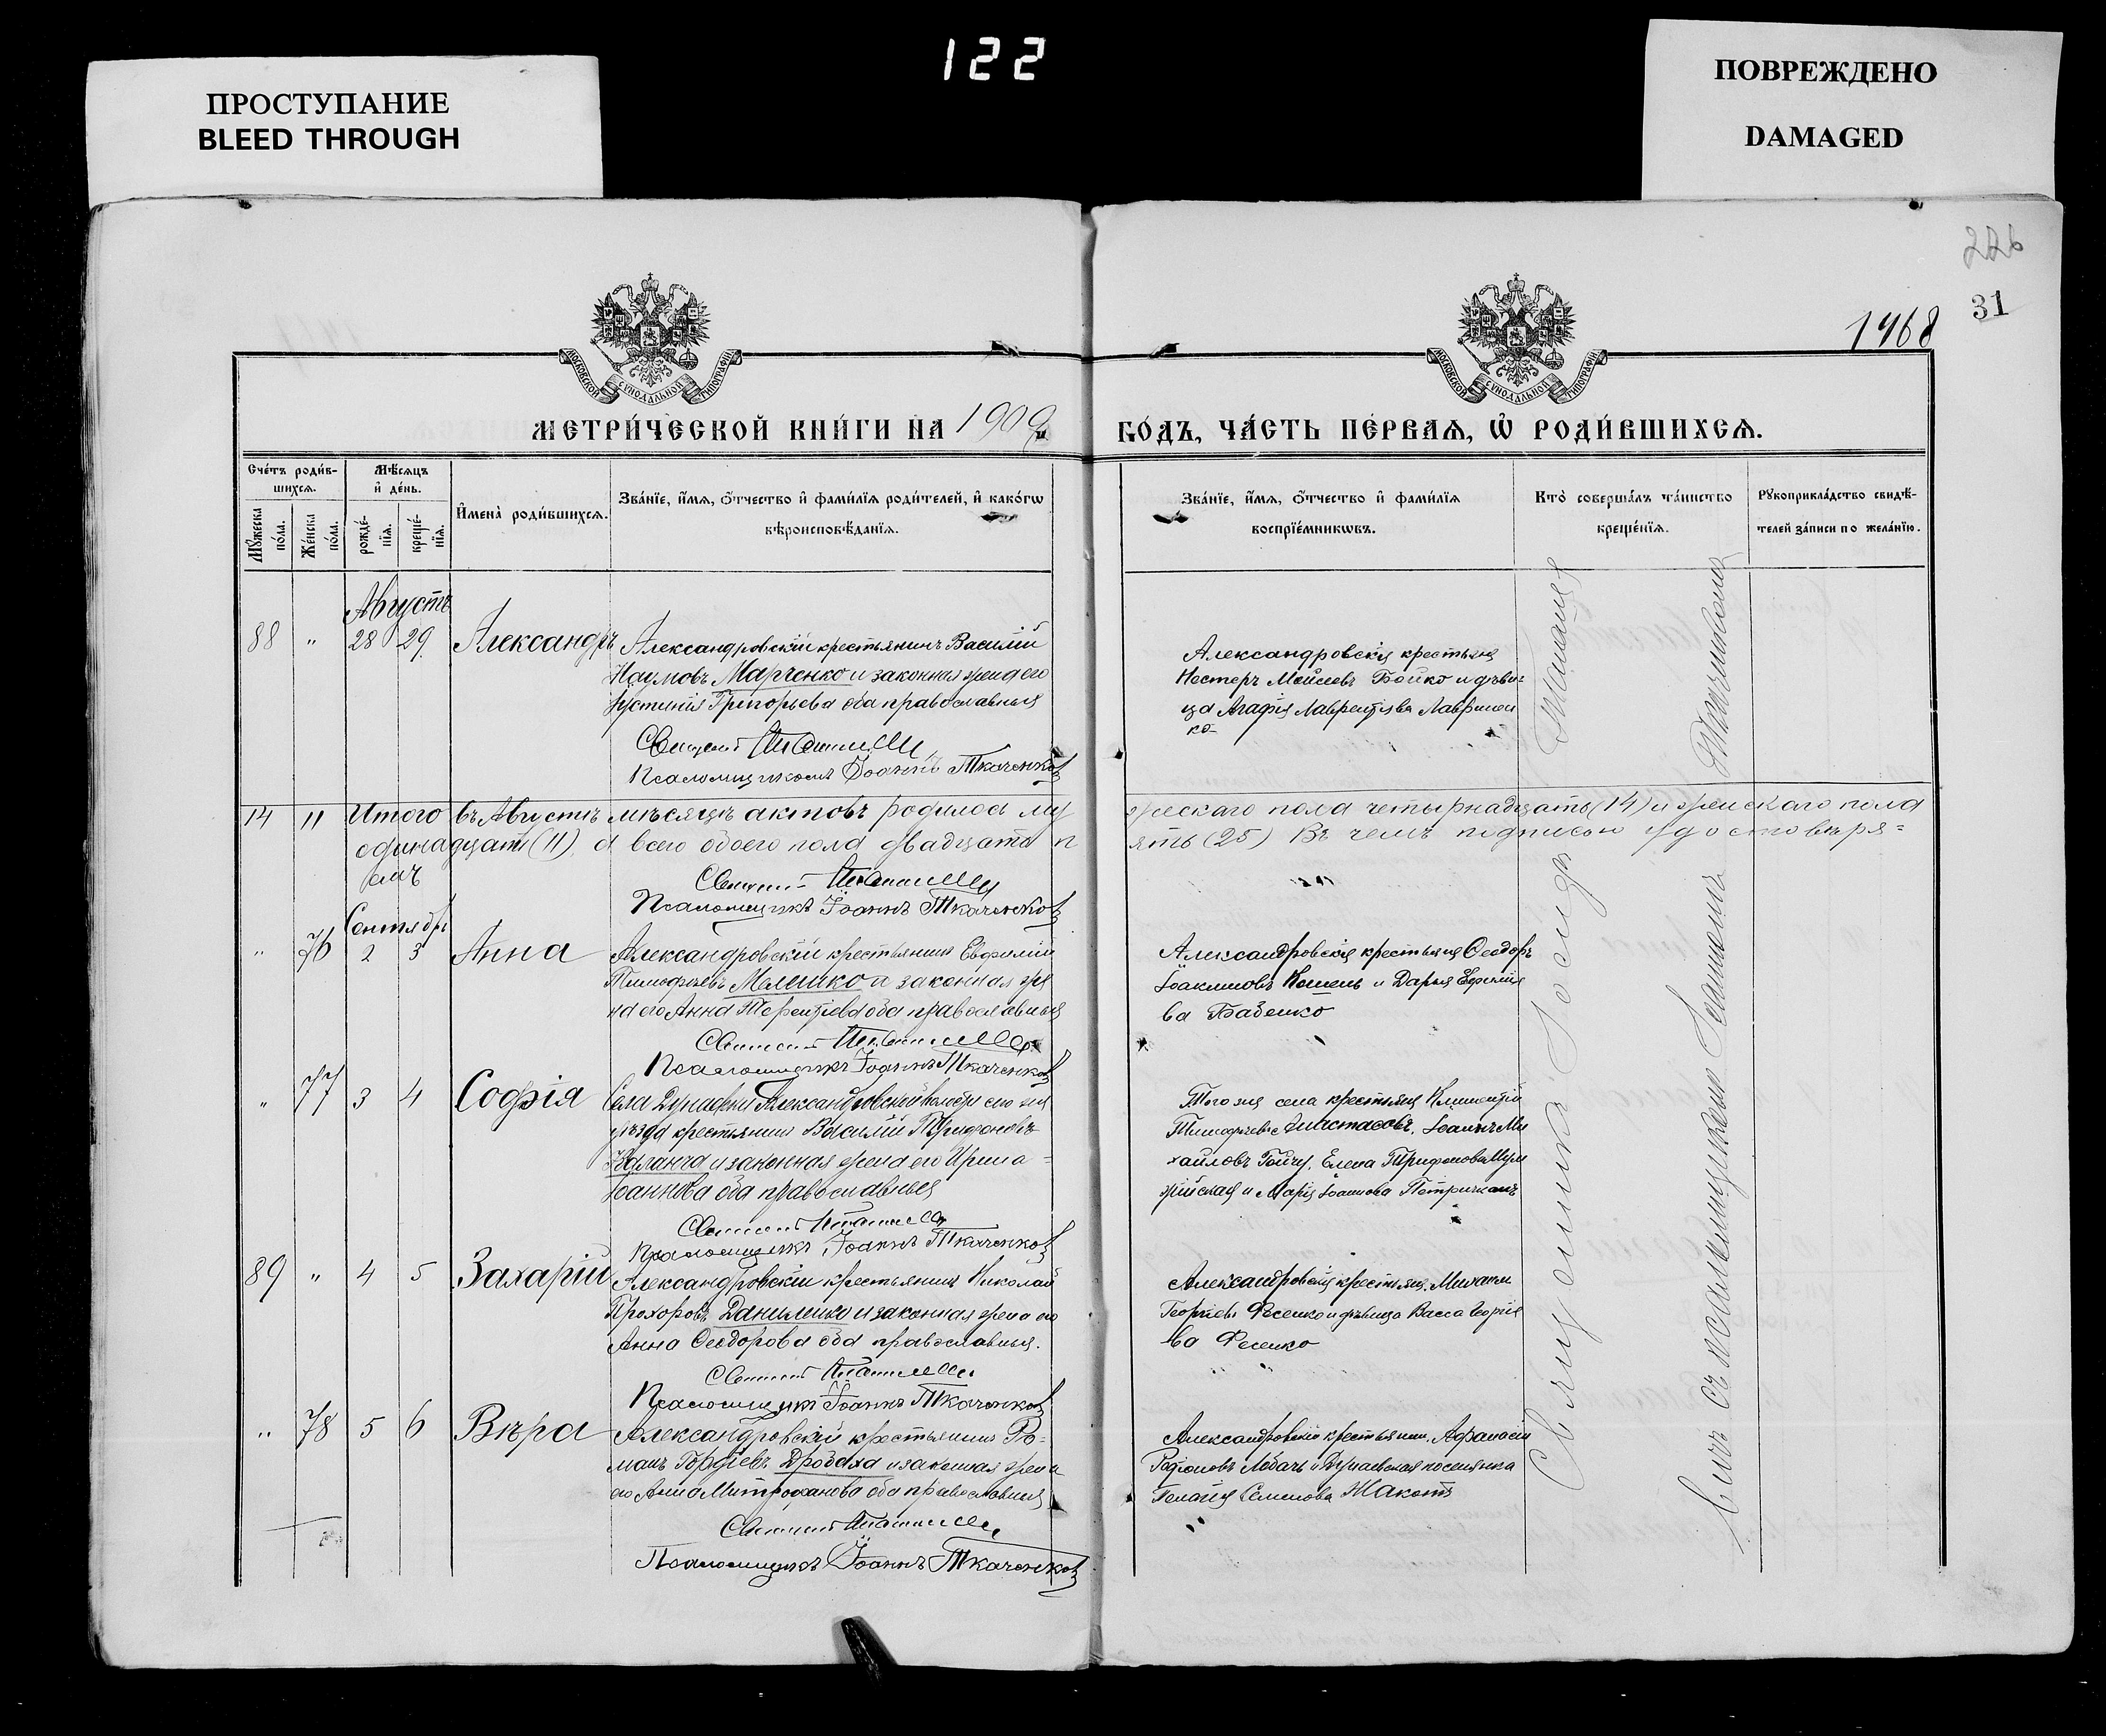 122
ПРОСТУПАНИЕ
BLEED THROUGH
ПОВРЕЖДЕНО
DAMAGED
226
31
1468
МОСКОВСКОЙ СѴНОДАЛЬНОЙ ТИПОГРАФІИ
МОСКОВСКОЙ СѴНОДАЛЬНОЙ ТИПОГРАФІИ
МЕТРИ́ЧЕСКОЙ КНИ́ГИ НА 1909
ГО́ДЪ, ЧА́СТЬ ПЕ́РВАѦ, Ѡ҆ РОДИ́ВШИХСѦ.
Сче́тъ роди́в-
шихсѧ.
Мѣ́сѧцъ
и҆ де́нь.
Мꙋ́жеска
по́ла.
Же́нска
по́ла.
рожде́-
нїѧ.
креще́-
нїѧ.
И҆мена̀ роди́вшихсѧ.
Зва́нїе, и҆́мѧ, ѻ҆́тчество и҆ фами́лїѧ роди́телей, и҆ како́гѡ
вѣроисповѣ́данїѧ.
Зва́нїе, и҆́мѧ, ѻ҆́тчество и҆ фами́лїѧ
воспрїе́мникѡвъ.
Кто̀ соверша́лъ та́инство
креще́нїѧ.
Рꙋкоприкла́дство свидѣ́-
телей за́писи по жела́нїю.
Августъ
88 " 28 29 Александръ
Александровскій крестьянинъ Василій
Наумовъ Марченко и законная жена его
Іустинія Григорьева оба православныя
Псаломщикомъ Іоаннъ Ткаченковъ
Александровскія крестьяне
Нестеръ Моисеевъ Бойко и дѣви-
ца Агафія Лаврентіева Лавринен
ко
14 11 Итого въ Августѣ мѣсяцѣ актовъ родилось му
жескаго пола четырнадцать (14) и женскаго пола
одинадцать (11), а всего обоего пола двадцать п
ять (25) Въ чемъ подписью удостовѣря=
емъ
Псаломщикъ Іоаннъ Ткаченковъ
Сентябрь
" 76 2 3 Анна
Александровскій крестьянинъ Евфимій
Тимофѣевъ Мелешко и законная же
на его Анна Терентіева оба православныя
Псаломщикъ Іоаннъ Ткаченковъ
Александровскія крестьяне Ѳеодоръ
Іоакимовъ Кошель и Дарья Ефиміе
ва Бабенко
" 77 3 4 Софія
Села Дунаевки Александровской волости сего же
уѣзда крестьянинъ Василій Трифоновъ
Каланча и законная жена его Ирина
Іоаннова оба православныя
Псаломщикъ Іоаннъ Ткаченковъ
Того же села крестьяне Климентій
Тимофѣевъ Анастасовъ, Іоаннъ Ми
хайловъ Гайчу, Елена Трифонова
и Марія Іоаннова
89 " 4 5 Захарій
Александровскій крестьянинъ Николай
Прохоровъ Данилейко и законная жена его
Анна Ѳеодорова оба православныя.
Псаломщикъ Іоаннъ Ткаченковъ
Александровскія крестьяне Михаилъ
Георгіевъ Фесенко и дѣвица Васса Георгіе
ва Фесенко
" 78 5 6 Вѣра
Александровскій крестьянинъ Ро=
манъ Гордіевъ Дробаха и законная жена
его Анна Митрофанова оба православныя
Псаломщикъ Іоаннъ Ткаченковъ
Александровскій крестьянинъ Афанасій
Родіоновъ Лобачъ и Дунаевская поселянка
Пелагія Семенова Жакотъ
Священникъ Іосифъ
съ псаломщикомъ Іоанномъ Ткаченковымъ